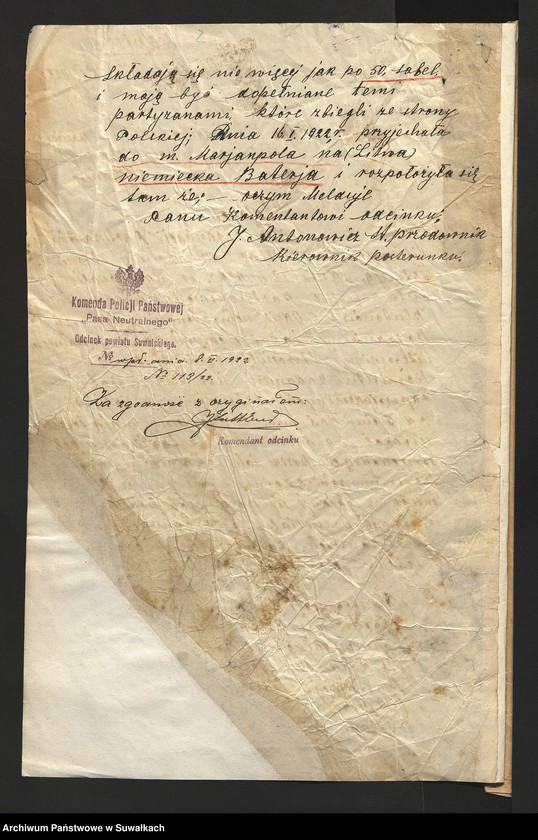 składają się nie więcej jak po 50, sabel,
i mają być dopełniane temi
partyzanami, które zbiegli ze strony
Polskiej; Dnia 16.I.1922 r. przyjechała
do m. Marjanpola na (Litwa)
niemiecka Baterja i rozpołożyła się
tam że; – oczym Melduje
Panu Komentantowi odcinku,
J. Antonowicz St. przodownik
Kierownik posterunku.
Komenda Policji Państwowej
„Pasa Neutralnego"
Odcinek powiatu Suwalskiego.
wpł. dnia 8. 1922
№ 113/22.
Za zgodność z oryginałem:
Komendant odcinku
Archiwum Państwowe w Suwałkach